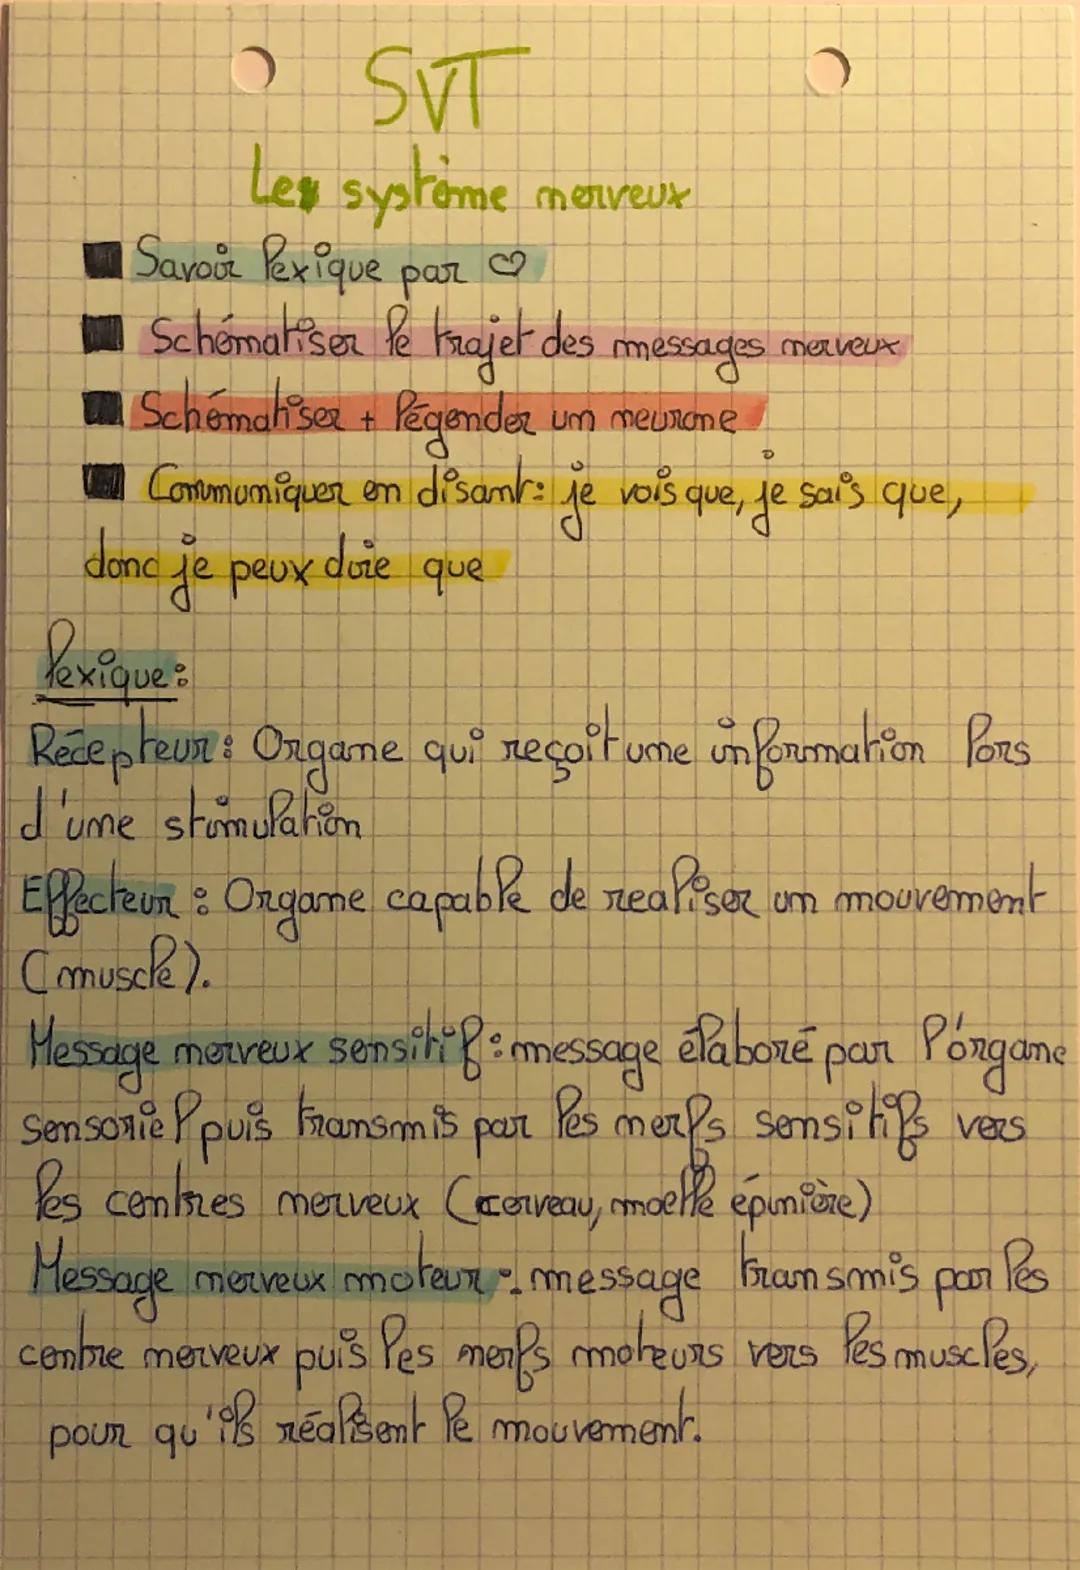 SVT
Le système nerveux
Savoir lexique par ♡
Schématiser le trajet des messages nerveux
Schématiser + légender un neurone
Communiquer en disant: je vois que, je sais que,
donc je peux dire que
lexique:
Récepteur: Organe qui reçoit une information lors
d'une stimulation
Effecteur: Organe capable de realiser un mouvement
(muscle).
Message nerveux sensitif: message élaboré par l'órgane
sensoriel puis transmis par les nerfs sensitifs vers
les centres nerveux (cerveau, moelle épinière)
Message nerveux moteur: message transmis par les
centre nerveux puis les nerfs moteurs vers les muscles,
pour qu'ils réalisent le mouvement.